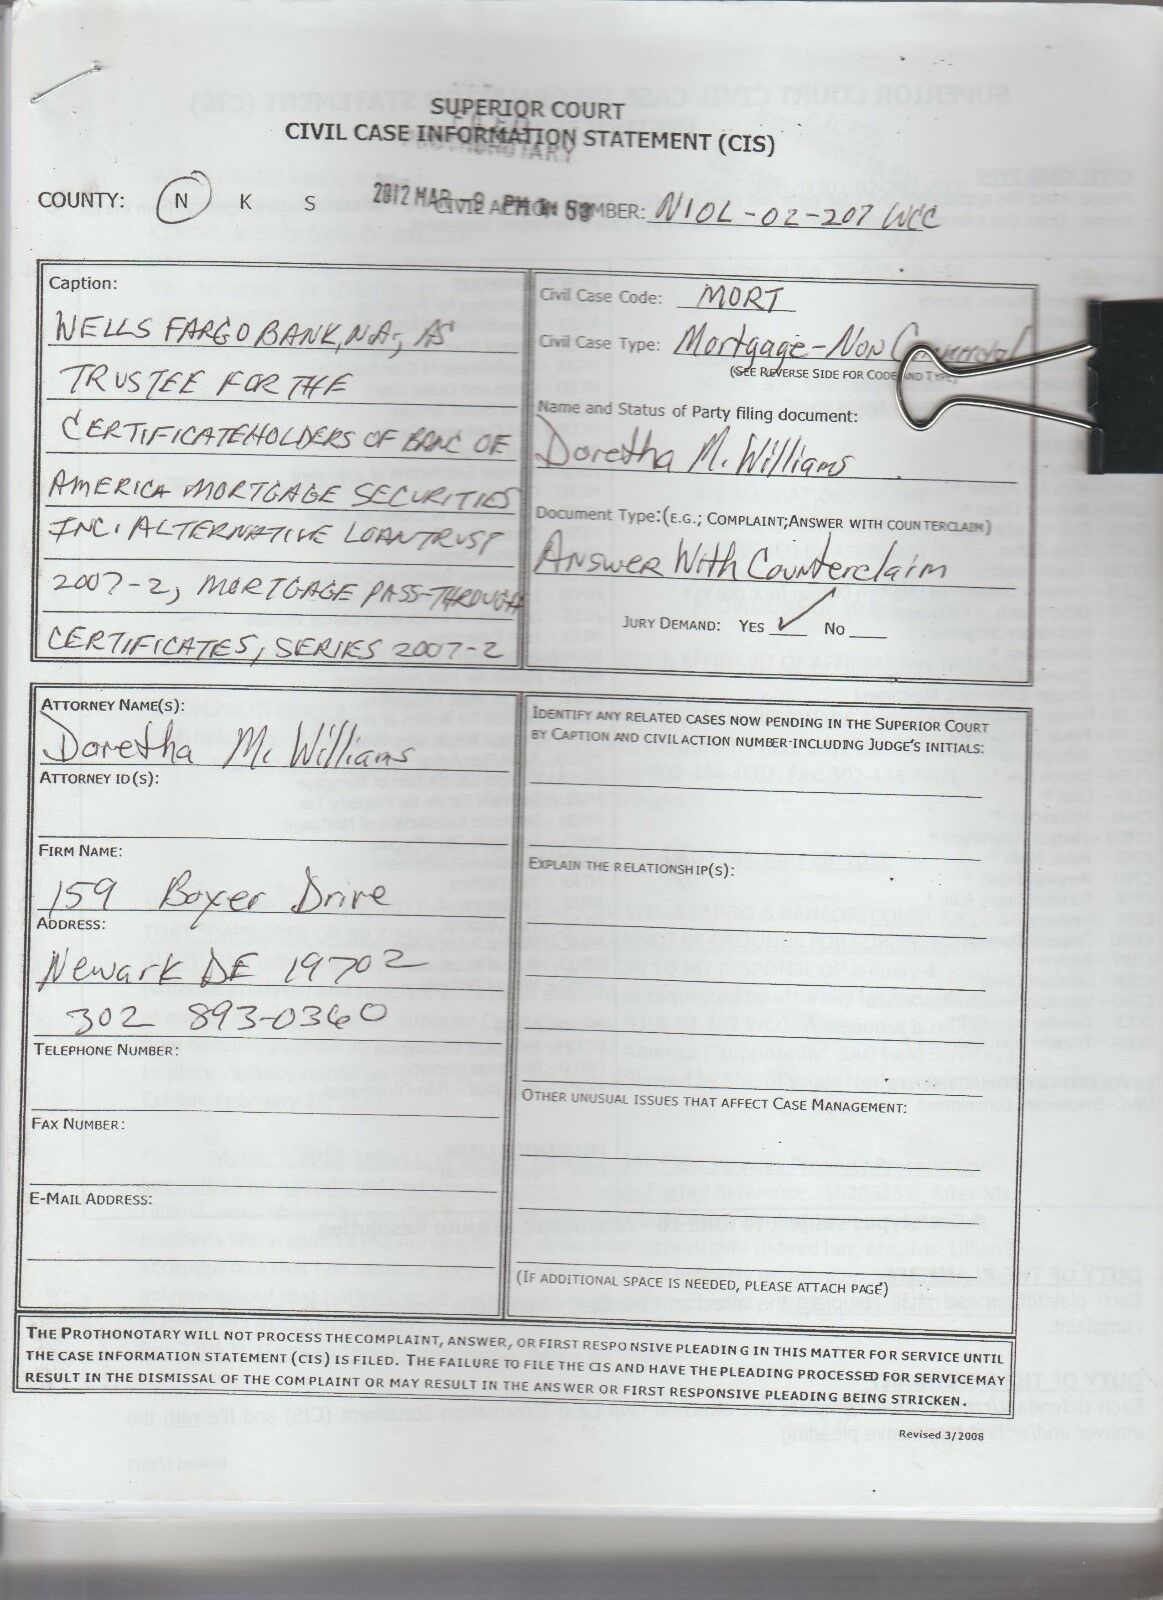 SUPERIOR COURT
CIVIL CASE INFORMATION STATEMENT (CIS)
FILED
PROTHONOTARY
COUNTY: N K S
2012 MAR -9 PM 53
CIVIL ACTION NUMBER: N10L-02-207 WCC
Caption:
WELLS FARGO BANK, N.A., AS
TRUSTEE FOR THE
CERTIFICATEHOLDERS OF BANC OF
AMERICA MORTGAGE SECURITIES
INC. ALTERNATIVE LOAN TRUST
2007-2, MORTGAGE PASS-THROUGH
CERTIFICATES, SERIES 2007-2
Civil Case Code: MORT
Civil Case Type: Mortgage-Non Commercial
(SEE REVERSE SIDE FOR CODE AND TYPE)
Name and Status of Party filing document:
Doretha M. Williams
Document Type:(E.G.; COMPLAINT;ANSWER WITH COUNTERCLAIM)
Answer With Counterclaim
JURY DEMAND: YES ✓ NO
ATTORNEY NAME(S):
Doretha M. Williams
ATTORNEY ID(S):
FIRM NAME:
159 Boxer Drive
ADDRESS:
Newark DE 19702
302 893-0360
TELEPHONE NUMBER:
FAX NUMBER:
E-MAIL ADDRESS:
IDENTIFY ANY RELATED CASES NOW PENDING IN THE SUPERIOR COURT
BY CAPTION AND CIVIL ACTION NUMBER INCLUDING JUDGE'S INITIALS:
EXPLAIN THE RELATIONSHIP(S):
OTHER UNUSUAL ISSUES THAT AFFECT CASE MANAGEMENT:
(IF ADDITIONAL SPACE IS NEEDED, PLEASE ATTACH PAGE)
THE PROTHONOTARY WILL NOT PROCESS THE COMPLAINT, ANSWER, OR FIRST RESPONSIVE PLEADING IN THIS MATTER FOR SERVICE UNTIL
THE CASE INFORMATION STATEMENT (CIS) IS FILED. THE FAILURE TO FILE THE CIS AND HAVE THE PLEADING PROCESSED FOR SERVICE MAY
RESULT IN THE DISMISSAL OF THE COMPLAINT OR MAY RESULT IN THE ANSWER OR FIRST RESPONSIVE PLEADING BEING STRICKEN.
Revised 3/2008